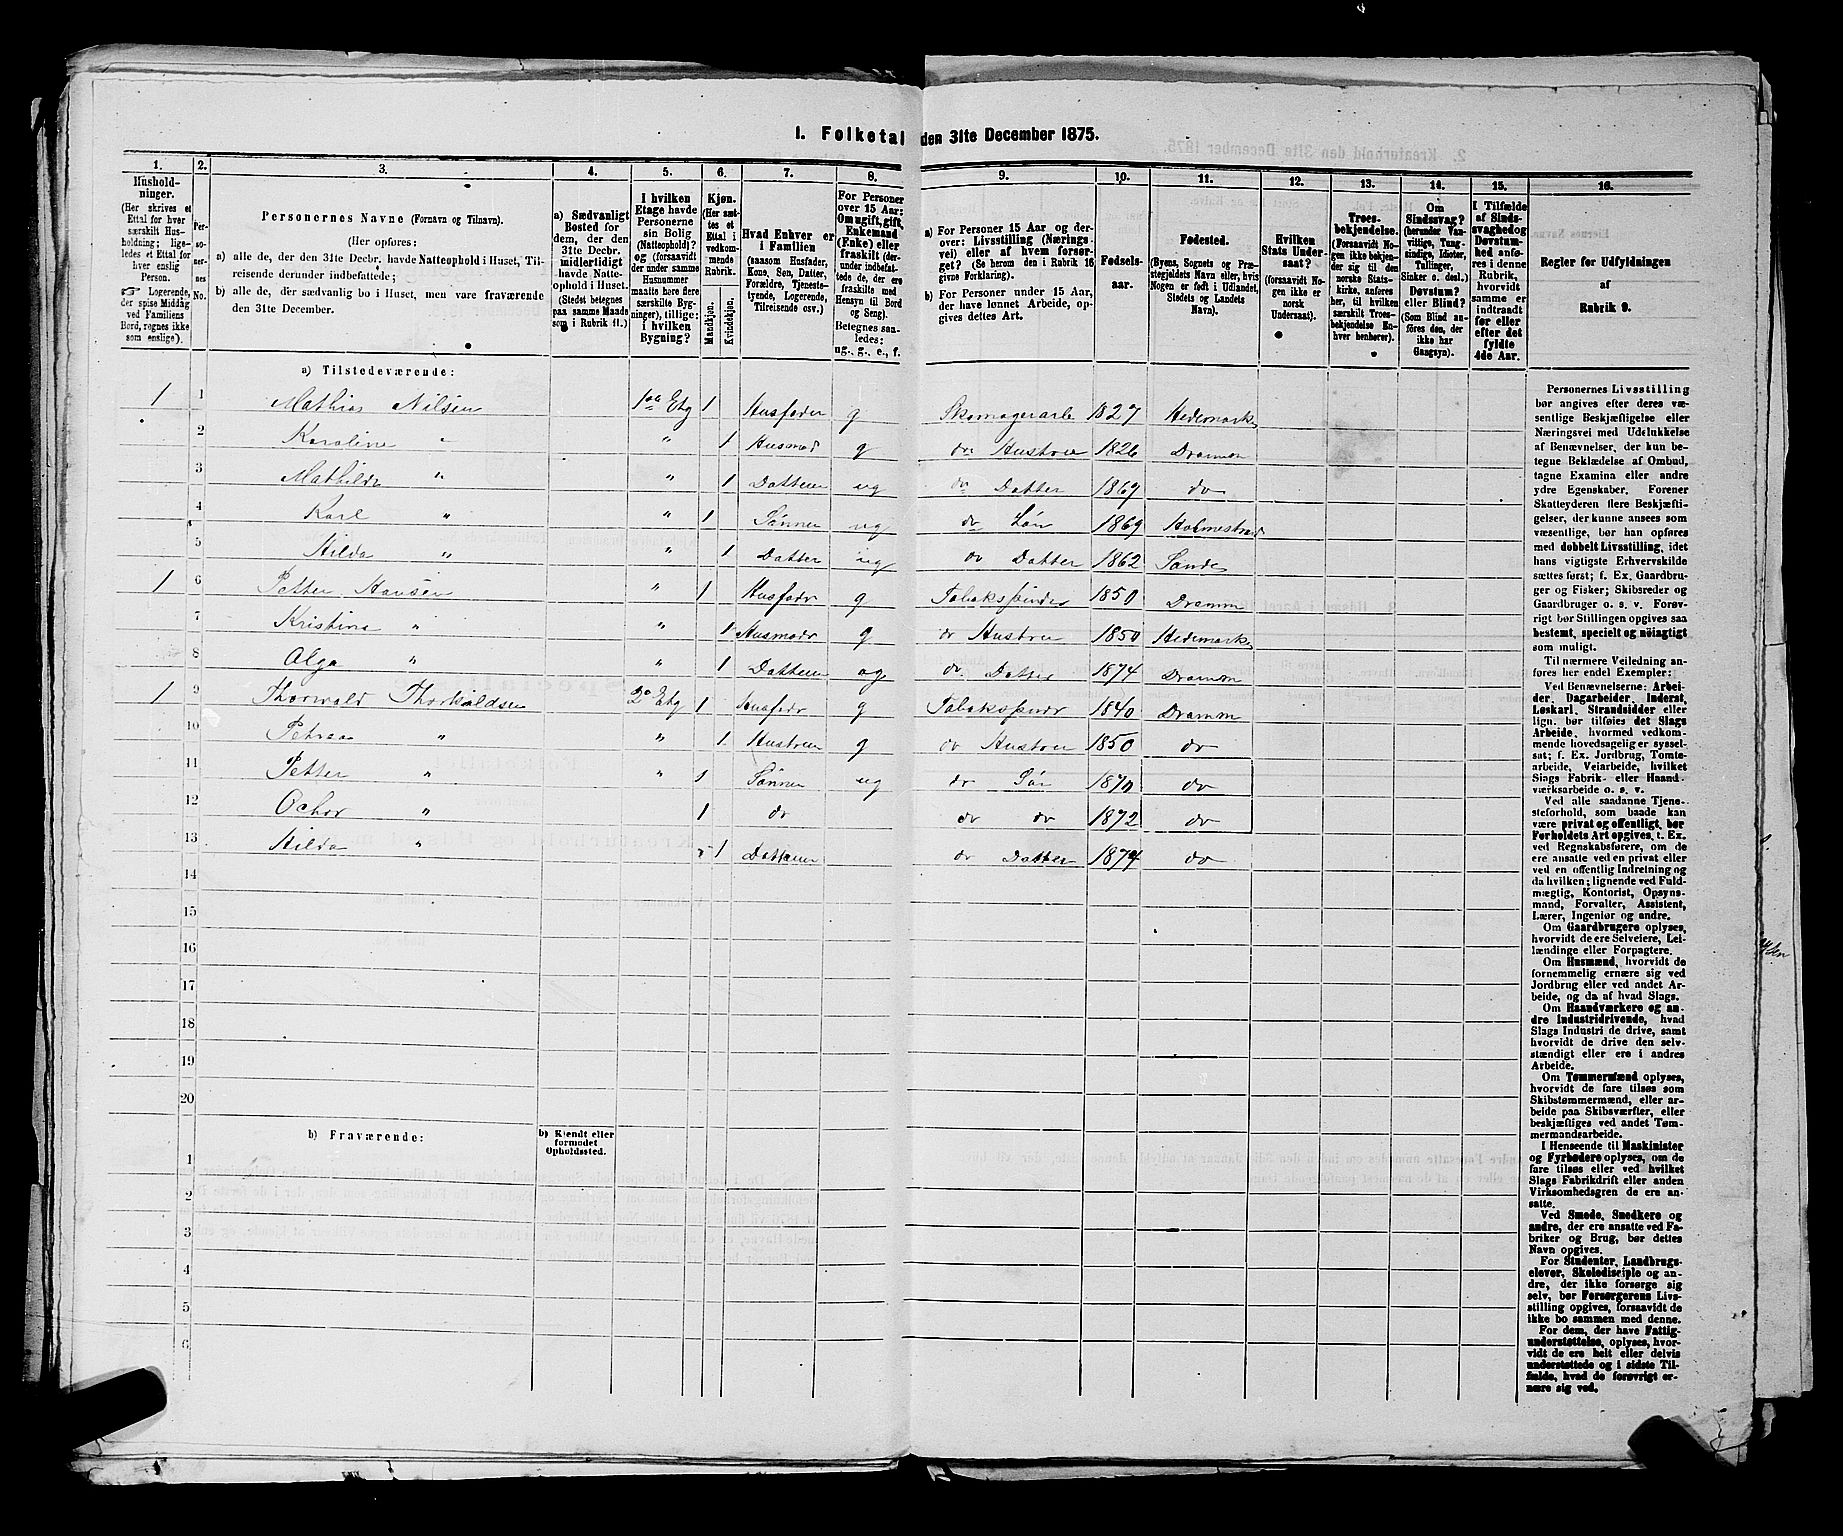 1. Folketal den 31te December 1875.
1. 2. 3. 4. 5. 6. 7. 8. 9. 10. 11. 12. 13. 14. 15. 16.
Husholdninger. (Her skrives et Ettal for hver særskilt Husholdning; ligeledes et Ettal for hver enslig Person. ☞ Logerende, der spise Middag ved Familiens Bord, regnes ikke som enslige).
Personernes No.
Personernes Navne (Fornavn og Tilnavn).
(Her opføres:
a) alle de, der den 31te Decbr. havde Natteophold i Huset, Tilreisende derunder indbefattede;
b) alle de, der sædvanlig bo i Huset, men vare fraværende den 31te December.
a) Sædvanligt Bosted for dem, der den 31te Decbr. midlertidigt havde Natteophold i Huset. (Stedet betegnes paa samme Maade som i Rubrik 11.)
I hvilken Etage havde Personerne sin Bolig (Natteophold)? og (forsaavidt der under samme Husnummer maatte høre flere særskilte Bygninger), tillige: i hvilken Bygning?
Kjøn. (Her sættes et Ettal i vedkommende Rubrik.
Mandkjøn. Kvindekjøn.
Hvad Enhver er i Familien (saasom Husfader, Kone, Søn, Datter, Forældre, Tjenestetyende, Logerende, Tilreisende osv.)
For Personer over 15 Aar: Om ugift, gift, Enkemand (Enke) eller fraskilt (derunder indbefattede de, der ere fraskilte med Hensyn til Bord og Seng). Betegnes saaledes: ug., g., e., f.
a) For Personer 15 Aar og derover: Livsstilling (Næringsvei) eller af hvem forsørget? (Se herom den i Rubrik 16 givne Forklaring).
b) For Personer under 15 Aar, der have lønnet Arbeide, opgives dettes Art.
Fødselsaar.
Fødested. (Byens, Sognets og Præstegjeldets Navn eller, hvis Nogen er født i Udlandet, Stedets og Landets Navn).
Hvilken Stats Undersaat? (forsaavidt Nogen ikke er norsk Undersaat).
Troesbekjendelse. (Forsaavidt Nogen ikke bekjender sig til den norske Statskirke, anføres her, til hvilken særskilt Troesbekjendelse Enhver henhører).
Om Sindssvag? (herunder Vanvittige, Tungsindige, Idioter, Tullinger, Sinker o. desl.) Døvstum? eller Blind? (Som Blind anføres den, der ikke har Gangsyn).
I Tilfælde af Sindssvaghed og Døvstumhed anføres i denne Rubrik, hvorvidt samme er indtraadt før eller efter det fyldte 4de Aar.
Regler for Udfyldningen af Rubrik 9.
a) Tilstedeværende:
1 1 Mathias Nilsen 1ste Etg 1 Husfader g Skomagerarb 1827 Hedemark
2 Karoline " " 1 Husmod g do Hustru 1826 Dramen
3 Mathilde " " 1 Datteren ug do Datter 1869 do
4 Karl " " 1 Sønnen ug do Søn 1869 Holmestrad
5 Hilda " " 1 Datter ug do Datter 1862 Sande
1 6 Petter Hansen " 1 Husfadr g Tobakspinder 1850 Dramm
7 Kristina " " 1 Husmodr g do Hustru 1850 Hedemark
8 Olga " " 1 Datteren ug do Datter 1874 Dramm
1 9 Thorwald Thorkildsen 2e Etg 1 Husfadr g Tobakspindr 1840 Dramm
10 Petraa " " 1 Hustruen g do Hustru 1850 do
11 Petter " " 1 Sønnen ug do Søn 1870 do
12 Ochar " 1 do do do 1872 do
13 Hilda " 1 Datteren do Datter 1874 do
14
15
16
17
18
19
20
b) Fraværende:
b) Kjendt eller formodet Opholdssted.
1
2
3
4
5
6
Personernes Livsstilling
bør angives efter deres væsentlige Beskjæftigelse eller
Næringsvei med Udelukkelse
af Benævnelser, der kun betegne Beklædelse af Ombud,
tagne Examina eller andre
ydre Egenskaber. Forener
Skatteyderen flere Beskjæftigelser, der kunne ansees som
væsentlige, bør han opføres
med dobbelt Livsstilling, idet
hans vigtigste Erhvervskilde
sættes først; f. Ex. Gaardbruger og Fisker; Skibsreder og
Gaardbruger o. s. v. Forøvrigt bør Stillingen opgives saa
bestemt, specielt og nøiagtigt
som muligt.
Til nærmere Veiledning anføres her endel Exempler:
Ved Benævnelserne: Arbeider, Dagarbeider, Inderst,
Løskarl, Strandsidder eller
lign. bør tilføies det Slags
Arbeide, hvormed vedkommende hovedsagelig er sysselsat; f. Ex. Jordbrug, Tomtearbeide, Veiarbeide, hvilket
Slags Fabrik- eller Haandværksarbeide o. s. v.
Ved alle saadanne Tjenesteforhold, som baade kan
være privat og offentligt, bør
Forholdets Art opgives, t. Ex.
ved Regnskabsførere, om de
ere ansatte ved en privat eller
ved en offentlig Indretning og
da hvilken; lignende ved Fuldmægtig, Kontorist, Opsynsmand, Forvalter, Assistent,
Lærer, Ingeniør og andre.
Om Gaardbrugere oplyses,
hvorvidt de ere Selveiere, Leilændinge eller Forpagtere.
Om Husmænd, hvorvidt de
fornemmelig ernære sig ved
Jordbrug eller ved andet Arbeide, og da af hvad Slags.
Om Haandværkere og andre Industridrivende, hvad
Slags Industri de drive, samt
hvorvidt de drive den selvstændigt eller ere i andres
Arbeide.
Om Tømmermænd oplyses,
hvorvidt de fare tilsøs som
Skibstømmermænd, eller arbeide paa Skibsværfter, eller
beskjæftiges ved andet Tømmermandsarbeide.
I Henseende til Maskinister
og Fyrbødere oplyses, om de
fare tilsøs eller ved hvilket
Slags Fabrikdrift eller anden
Virksomhedsgren de ere ansatte.
Ved Smede, Snedkere og
andre, der ere ansatte ved Fabriker og Brug, bør dettes
Navn opgives.
For Studenter, Landbrugselever, Skoledisciple og andre, der ikke forsørge sig
selv, bør Forsørgerens Livsstilling opgives, forsaavidt de
ikke bo sammen med denne.
For dem, der have Fattigunderstøttelse, oplyses, hvorvidt de ere helt eller delvis
understøttede og i sidste Tilfælde, hvad de forøvrigt ernære sig ved.